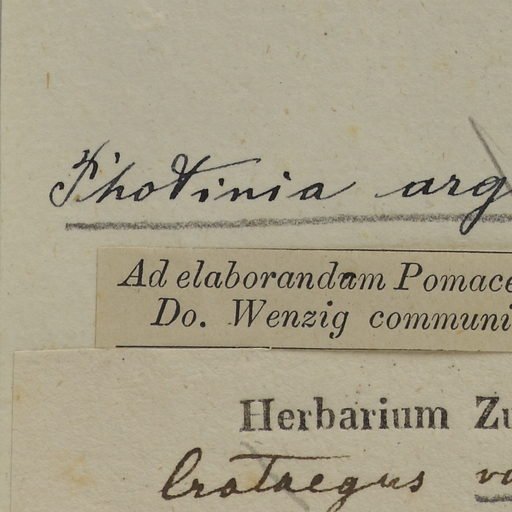 Photinia arg
Ad elaborandam Pomace
Do. Wenzig communi
Herbarium Zu
Crataegus va